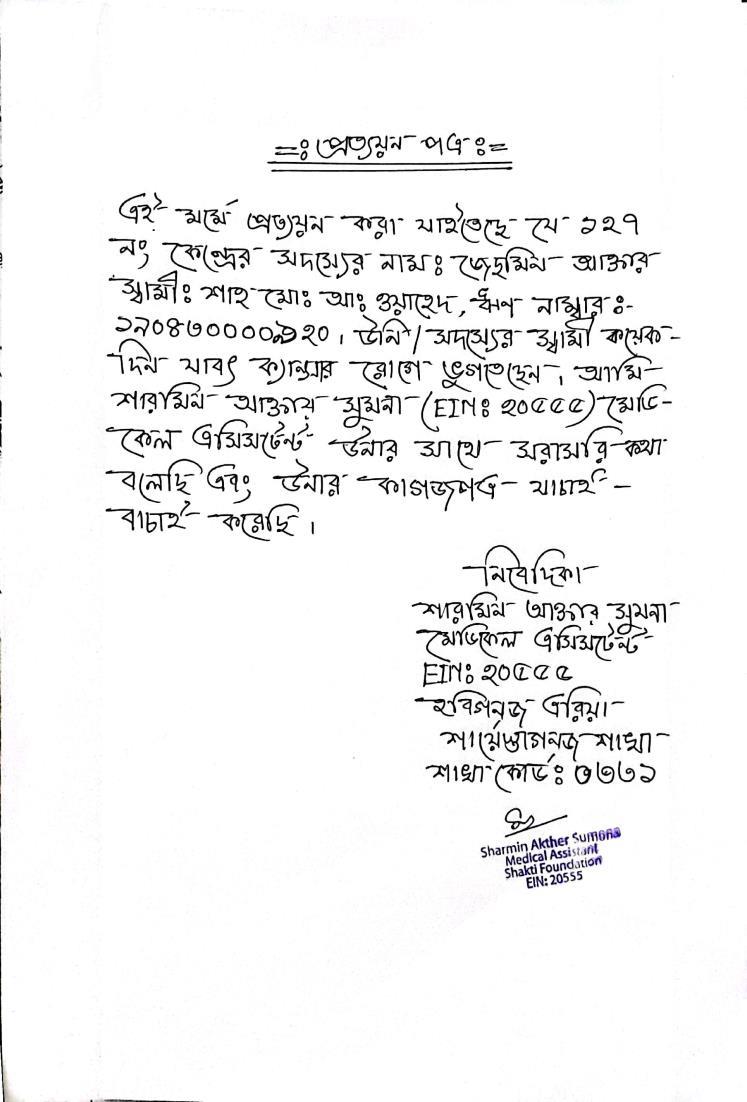 =ঃ প্রত্যয়ন পত্র ঃ=
এই মর্মে প্রত্যয়ন করা যাইতেছে যে ১২৭
নং কেন্দ্রের সদস্যের নামঃ জেছমিন আক্তার
স্বামীঃ শাহ মোঃ আঃ ওয়াহেদ, ঋণ নাম্বারঃ-
উনি/সদস্যের স্বামী কয়েক-
দিন যাবৎ ক্যান্সার রোগে ভুগতেছেন, আমি
শারমিন আক্তার সুমনা (EINঃ ২০৫৫৫) মেডি-
কেল এসিসটেন্ট উনার সাথে সরাসরি কথা
বলেছি এবং উনার কাগজপত্র যাচাই-
বাচাই করেছি।
নিবেদিকা
শারমিন আক্তার সুমনা
মেডিকেল এসিসটেন্ট
EINঃ ২০৫৫৫
হবিগনজ এরিয়া
শায়েস্তাগনজ শাখা
শাখা কোর্ডঃ ০৩৭১
Sharmin Akther Sumona
Medical Assistant
Shakti Foundation
EIN: 20555